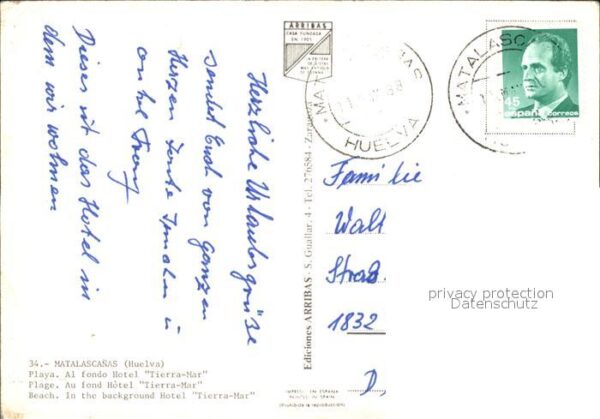 Herzliche Urlaubsgrüße
sendet Euch von ganzen
Herzen Tante
Onkel
Dieses ist das Hotel in
dem wir wohnen
ARRIBAS
CASA FUNDADA
EN 1905
MATALASCAÑAS
HUELVA
MATALASC
45
españa correos
Familie
Walt
Straß.
1832
D,
privacy protection
Datenschutz
Ediciones ARRIBAS - S. Guallar, 4 - Tel. 276884 - Zaragoza
34.- MATALASCAÑAS (Huelva)
Playa. Al fondo Hotel "Tierra-Mar"
Plage. Au fond Hôtel "Tierra-Mar"
Beach. in the background Hotel "Tierra-Mar"
IMPRESO EN ESPAÑA
PRINTED IN SPAIN
(Prohibida la reproducción)